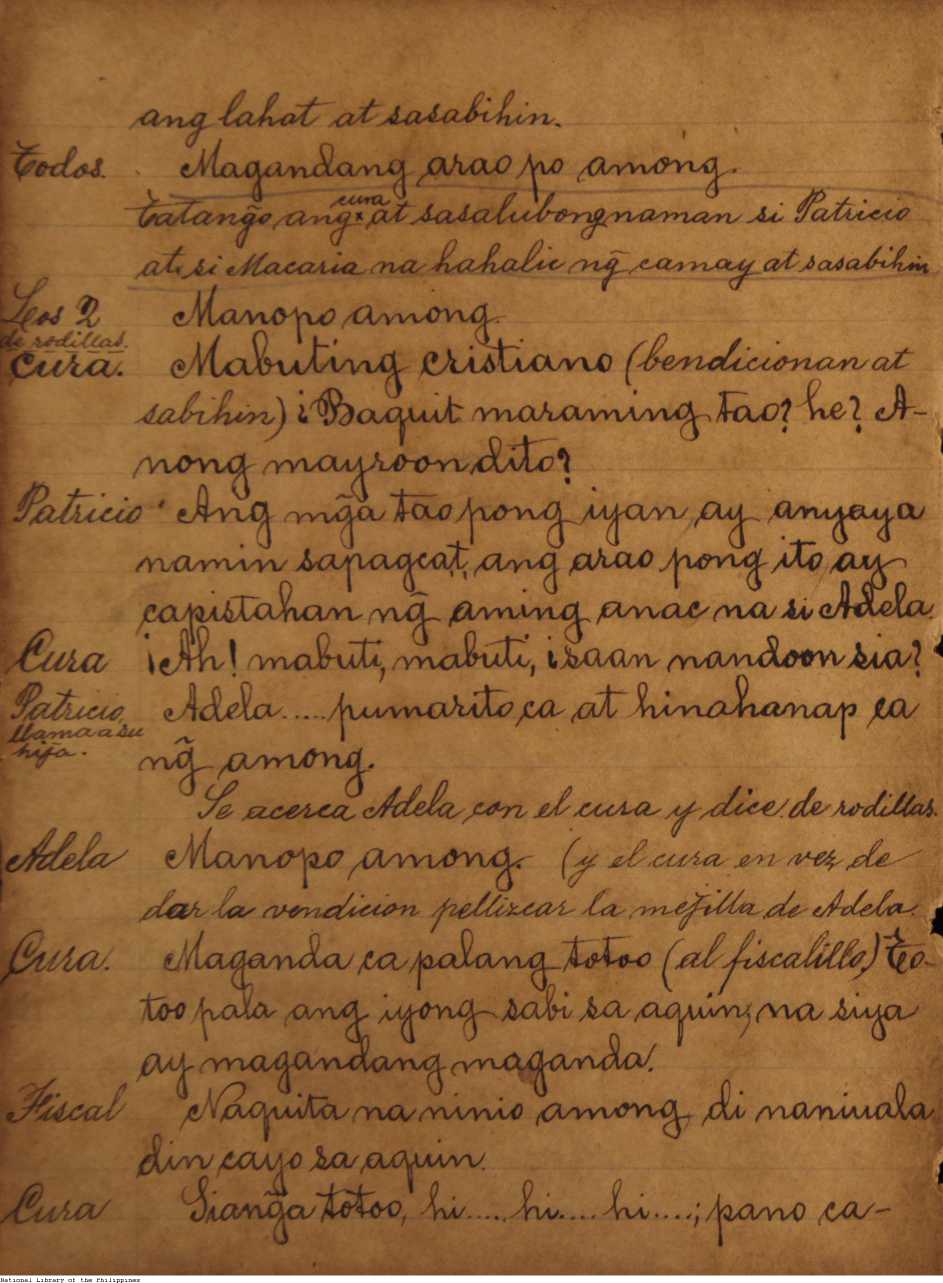 ang lahat at sasabihin.
Todos. Magandang arao po among.
Tatang̃o ang cura at sasalubong naman si Patricio
at si Macaria na hahalic ng̃ camay at sasabihin
Los 2 Manopo among.
de rodillas.
Cura. Mabuting cristiano (bendicionan at
sabihin) ¿Baquit maraming tao? he? A-
nong mayroon dito?
Patricio Ang mg̃a tao pong iyan ay anyaya
namin sapagcat, ang arao pong ito ay
capistahan ng̃ aming anac na si Adela.
Cura ¡Ah! mabuti, mabuti, ¿saan nandoon sia?
Patricio Adela.....pumarito ca at hinahanap ca
llama a su
hija. ng̃ among.
Se acerca Adela con el cura y dice de rodillas.
Adela Manopo among. (y el cura en vez de
dar la vendicion pellizcar la mejilla de Adela.
Cura. Maganda ca palang totoo (al fiscalillo) To-
too pala ang iyong sabi sa aquin, na siya
ay magandang maganda.
Fiscal Naquita na ninio among, di naniuala
din cayo sa aquin.
Cura Siang̃a totoo, hi.....hi....hi....; pano ca-
National Library of the Philippines